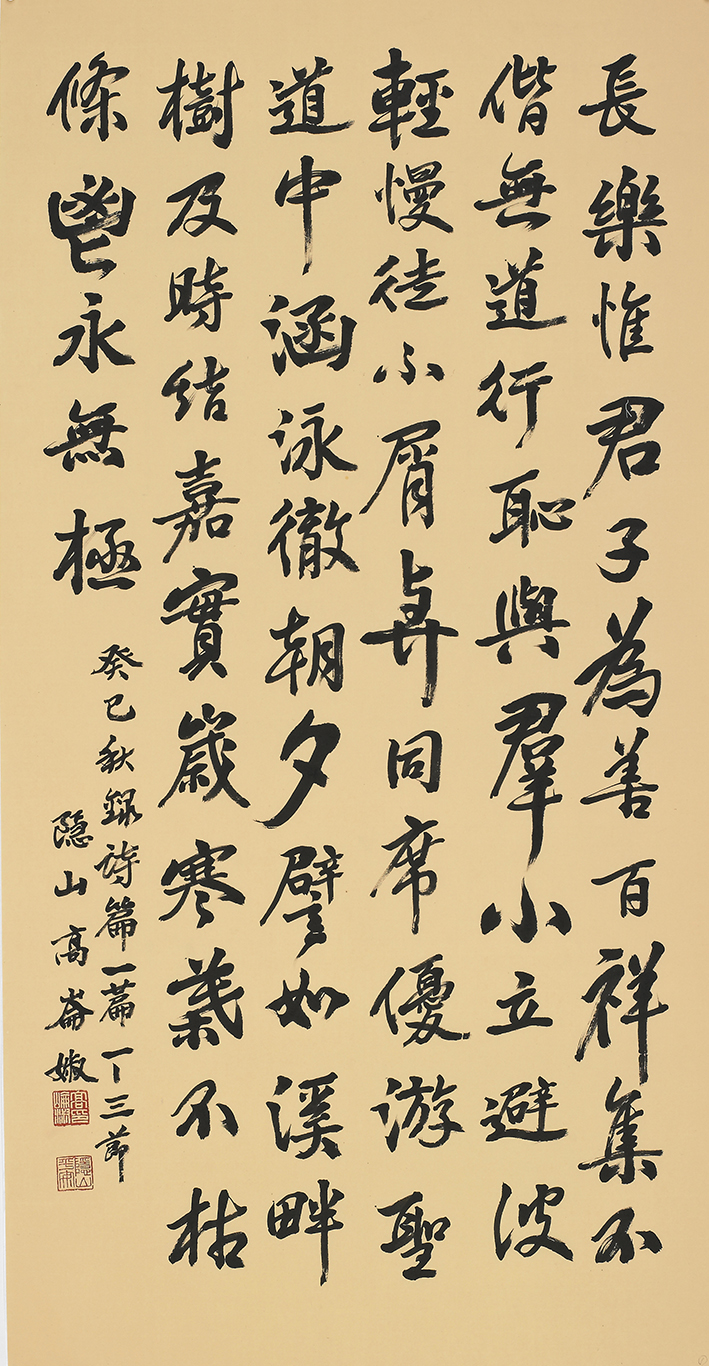 長樂惟君子為善百祥集不
偕無道行恥與羣小立避彼
輕慢徒不屑與同席優游聖
道中涵泳徹朝夕譬如溪畔
樹及時結嘉實歲寒葉不枯
條鬯永無極
癸巳秋錄詩篇一篇一丁三節
隱山高崙